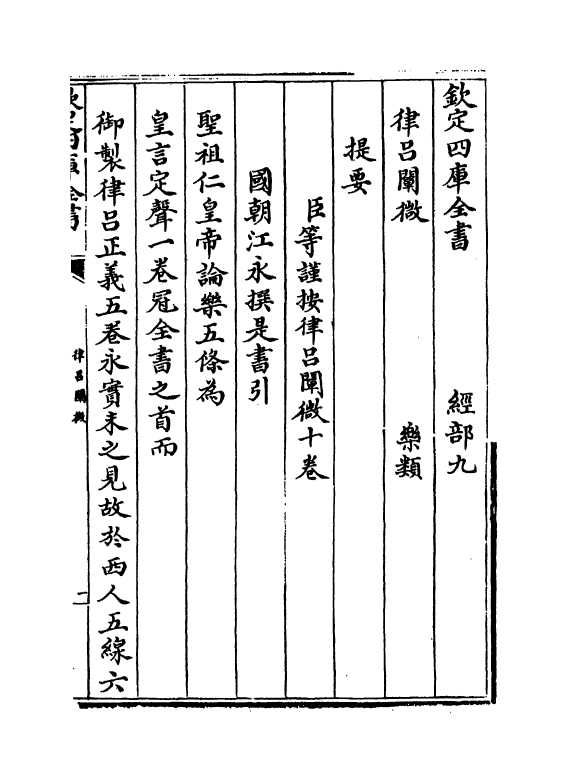 欽定四庫全書　經部九
律呂闡微　樂類
提要
臣等謹按律呂闡微十卷
國朝江永撰是書引
聖祖仁皇帝論樂五條為
皇言定聲一卷冠全書之首而
御製律呂正義五卷永實未之見故於西人五線六
欽定四庫全書
律呂闡微
二